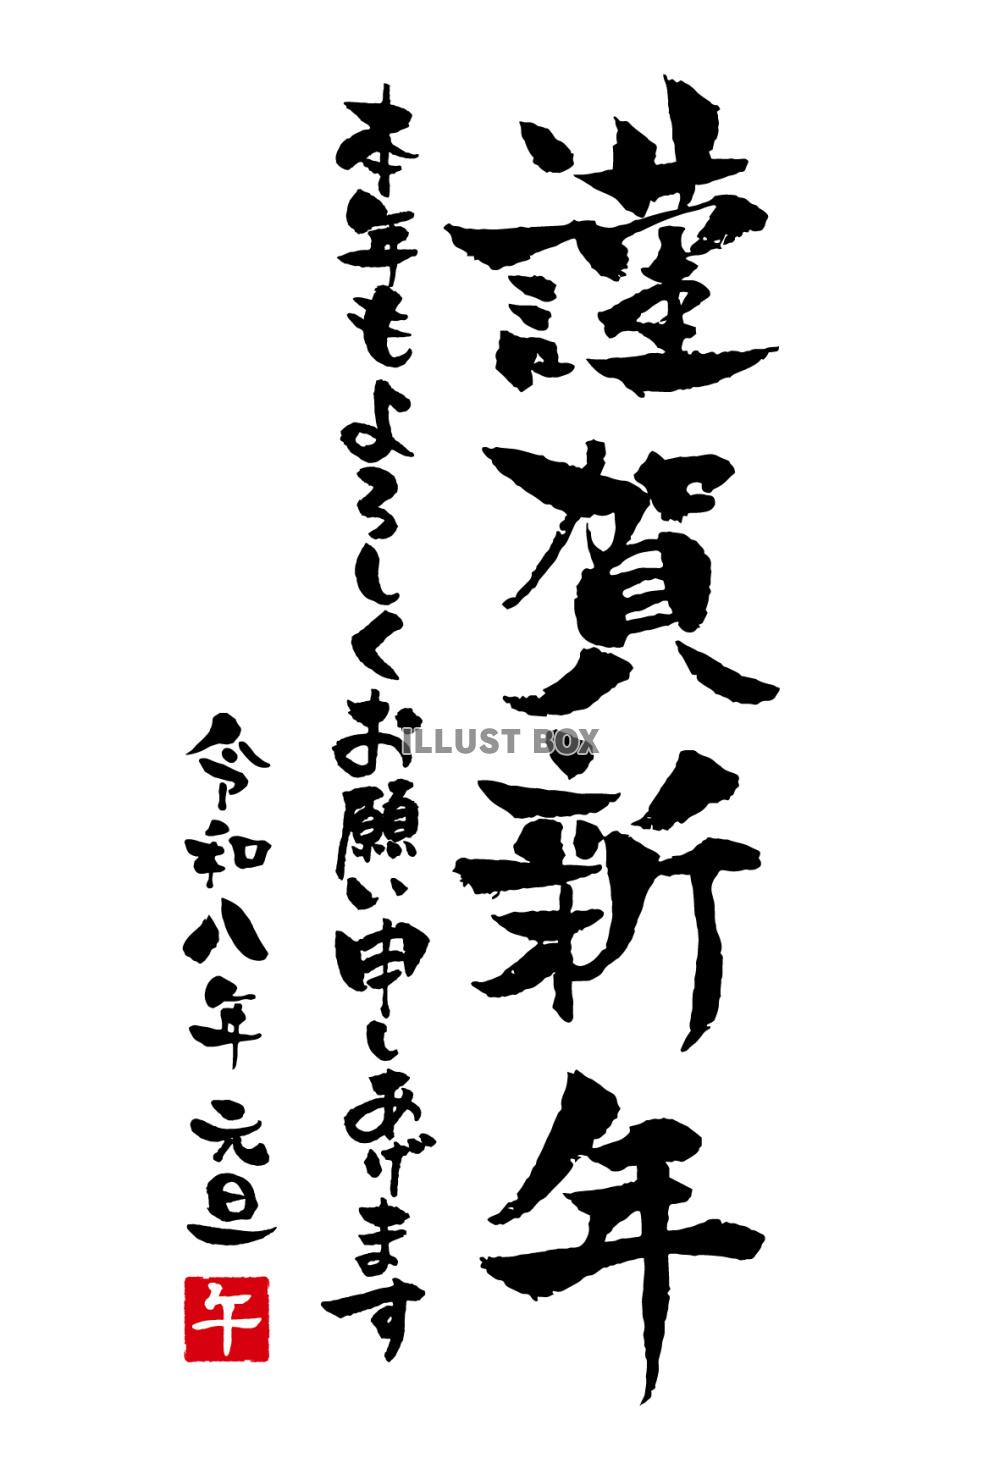 謹賀新年
本年もよろしくお願い申しあげます
令和八年 元旦
午
ILLUST BOX